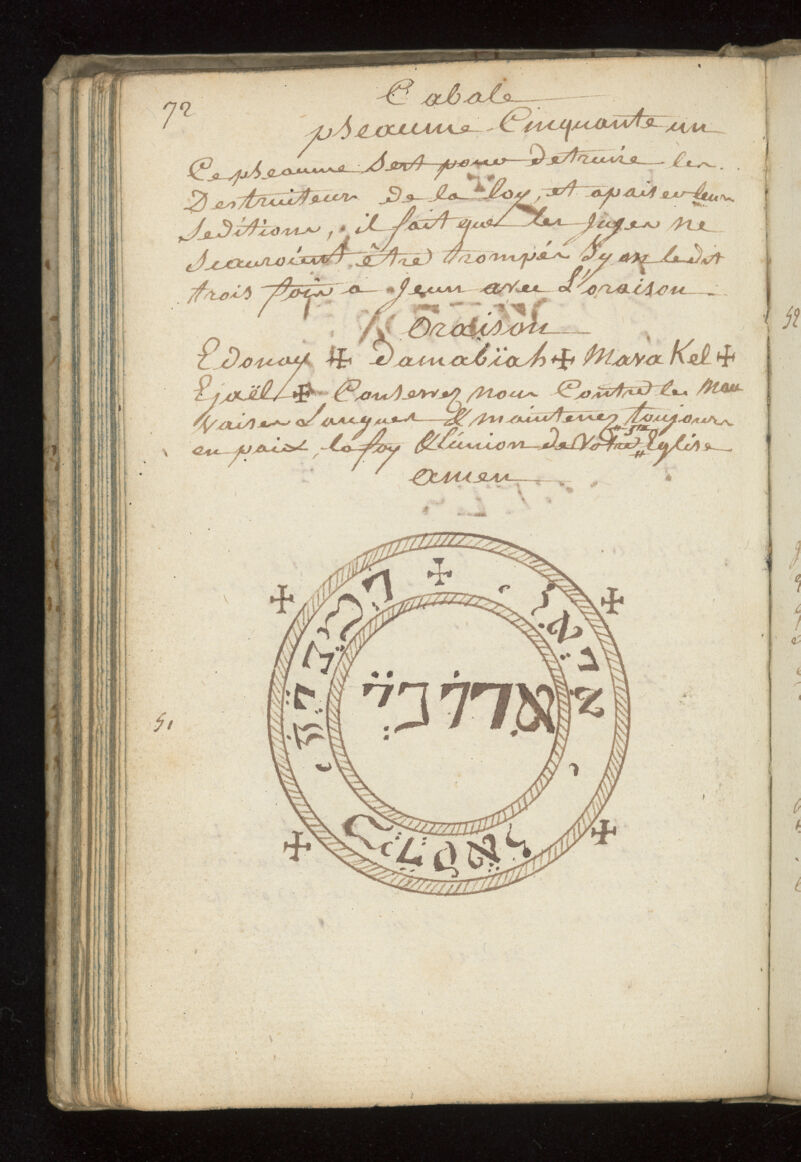 72
Cabale
pseaume Cinquante un
Ce pseaume Sert pour detruire les
Destruiteur de la loy, et apaiser leurs
Seditions, il fait que les juges ne
Scauroient être trompés Sy on le dit
trois fois a jeun avec L'oraison
Oraison
Edonay ✠ damabïah ✠ Mara Kel ✠
Ejaël ✠ Conservez nous Contre les Mau
vaises Langues & maintenez toujours
en paix, la foy & l'union de Votre Ste Eglise
amen
51
אדוני
52